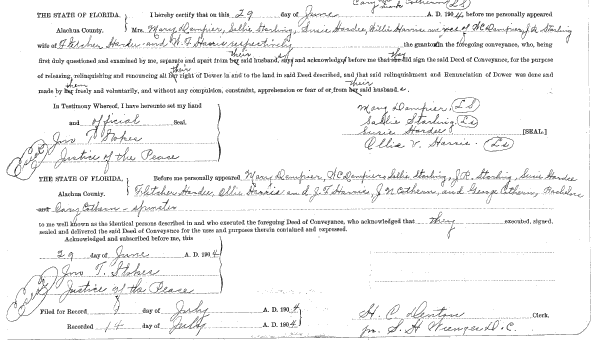 THE STATE OF FLORIDA, I hereby certify that on this 29 day of June A. D. 1904, before me personally appeared
Alachua County. Mrs. Mary Dampier, Sallie Starling, Susie Hardee, Ollie Harris, wives of W C Dampier, J R Starling
wife of Fletcher Hardee and W. F. Harris respectively the grantor in the foregoing conveyance, who, being
first duly questioned and examined by me, separate and apart from their said husband, says and acknowledged before me that they did sign the said Deed of Conveyance, for the purpose
of releasing, relinquishing and renouncing all their right of Dower in and to the land in said Deed described, and that said relinquishment and Renunciation of Dower was done and
made by them freely and voluntarily, and without any compulsion, constraint, apprehension or fear of or from their said husbands.
In Testimony Whereof, I have hereunto set my hand
and official Seal.
Jno T. Stokes
Justice of the Peace
Mary Dampier. LS
Sallie Starling. LS
Susie Hardee [SEAL.]
Ollie V. Harris. LS
THE STATE OF FLORIDA, Before me personally appeared Mary Dampier, W C Dampier, Sallie Starling, J. R. Starling, Susie Hardee
Alachua County. Fletcher Hardee, Ollie Harris and J. F. Harris, J N Cothern, and George Cothern, Bachelors
and Cary Cothern - spinster
to me well known as the identical persons described in and who executed the foregoing Deed of Conveyance, who acknowledged that they executed, signed,
sealed and delivered the said Deed of Conveyance for the uses and purposes therein contained and expressed.
Acknowledged and subscribed before me, this
29 day of June A. D. 1904
Jno T. Stokes
Justice of the Peace
Filed for Record 9 day of July A. D. 1904
Recorded 14 day of July A. D. 1904
H. C. Denton Clerk.
pr. S. H. Wienges D. C.